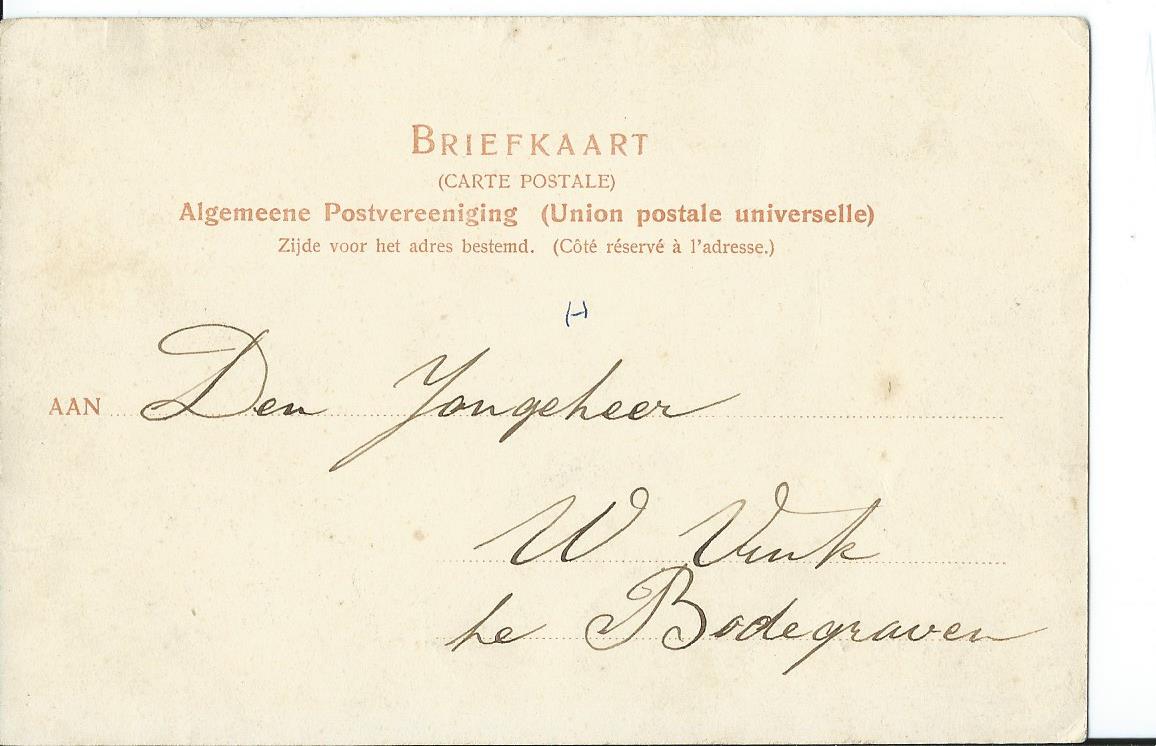 BRIEFKAART
(CARTE POSTALE)
Algemeene Postvereeniging (Union postale universelle)
Zijde voor het adres bestemd. (Côté réservé à l'adresse.)
AAN Den Jongeheer
W Vink
te Bodegraven